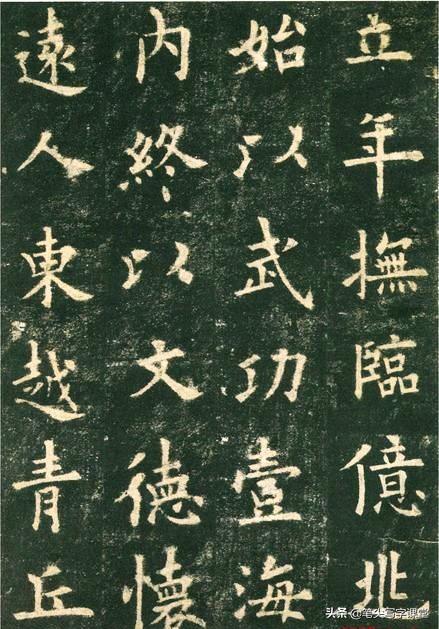 立年撫臨億兆
始以武功壹海
内終以文德懷
遠人東越青丘
头条 @笔尖写字课堂